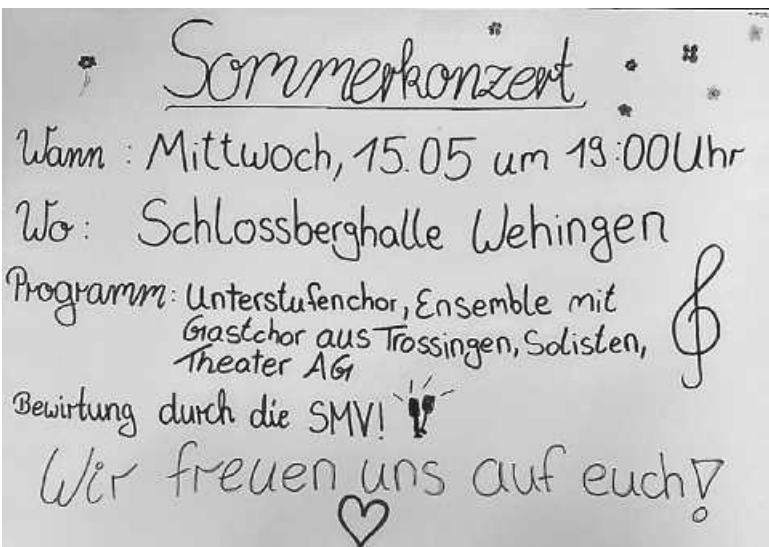 Sommerkonzert
Wann: Mittwoch, 15.05 um 19:00Uhr
Wo: Schlossberghalle Wehingen
Programm: Unterstufenchor, Ensemble mit
Gastchor aus Trossingen, Solisten,
Theater AG
Bewirtung durch die SMV!
Wir freuen uns auf euch!